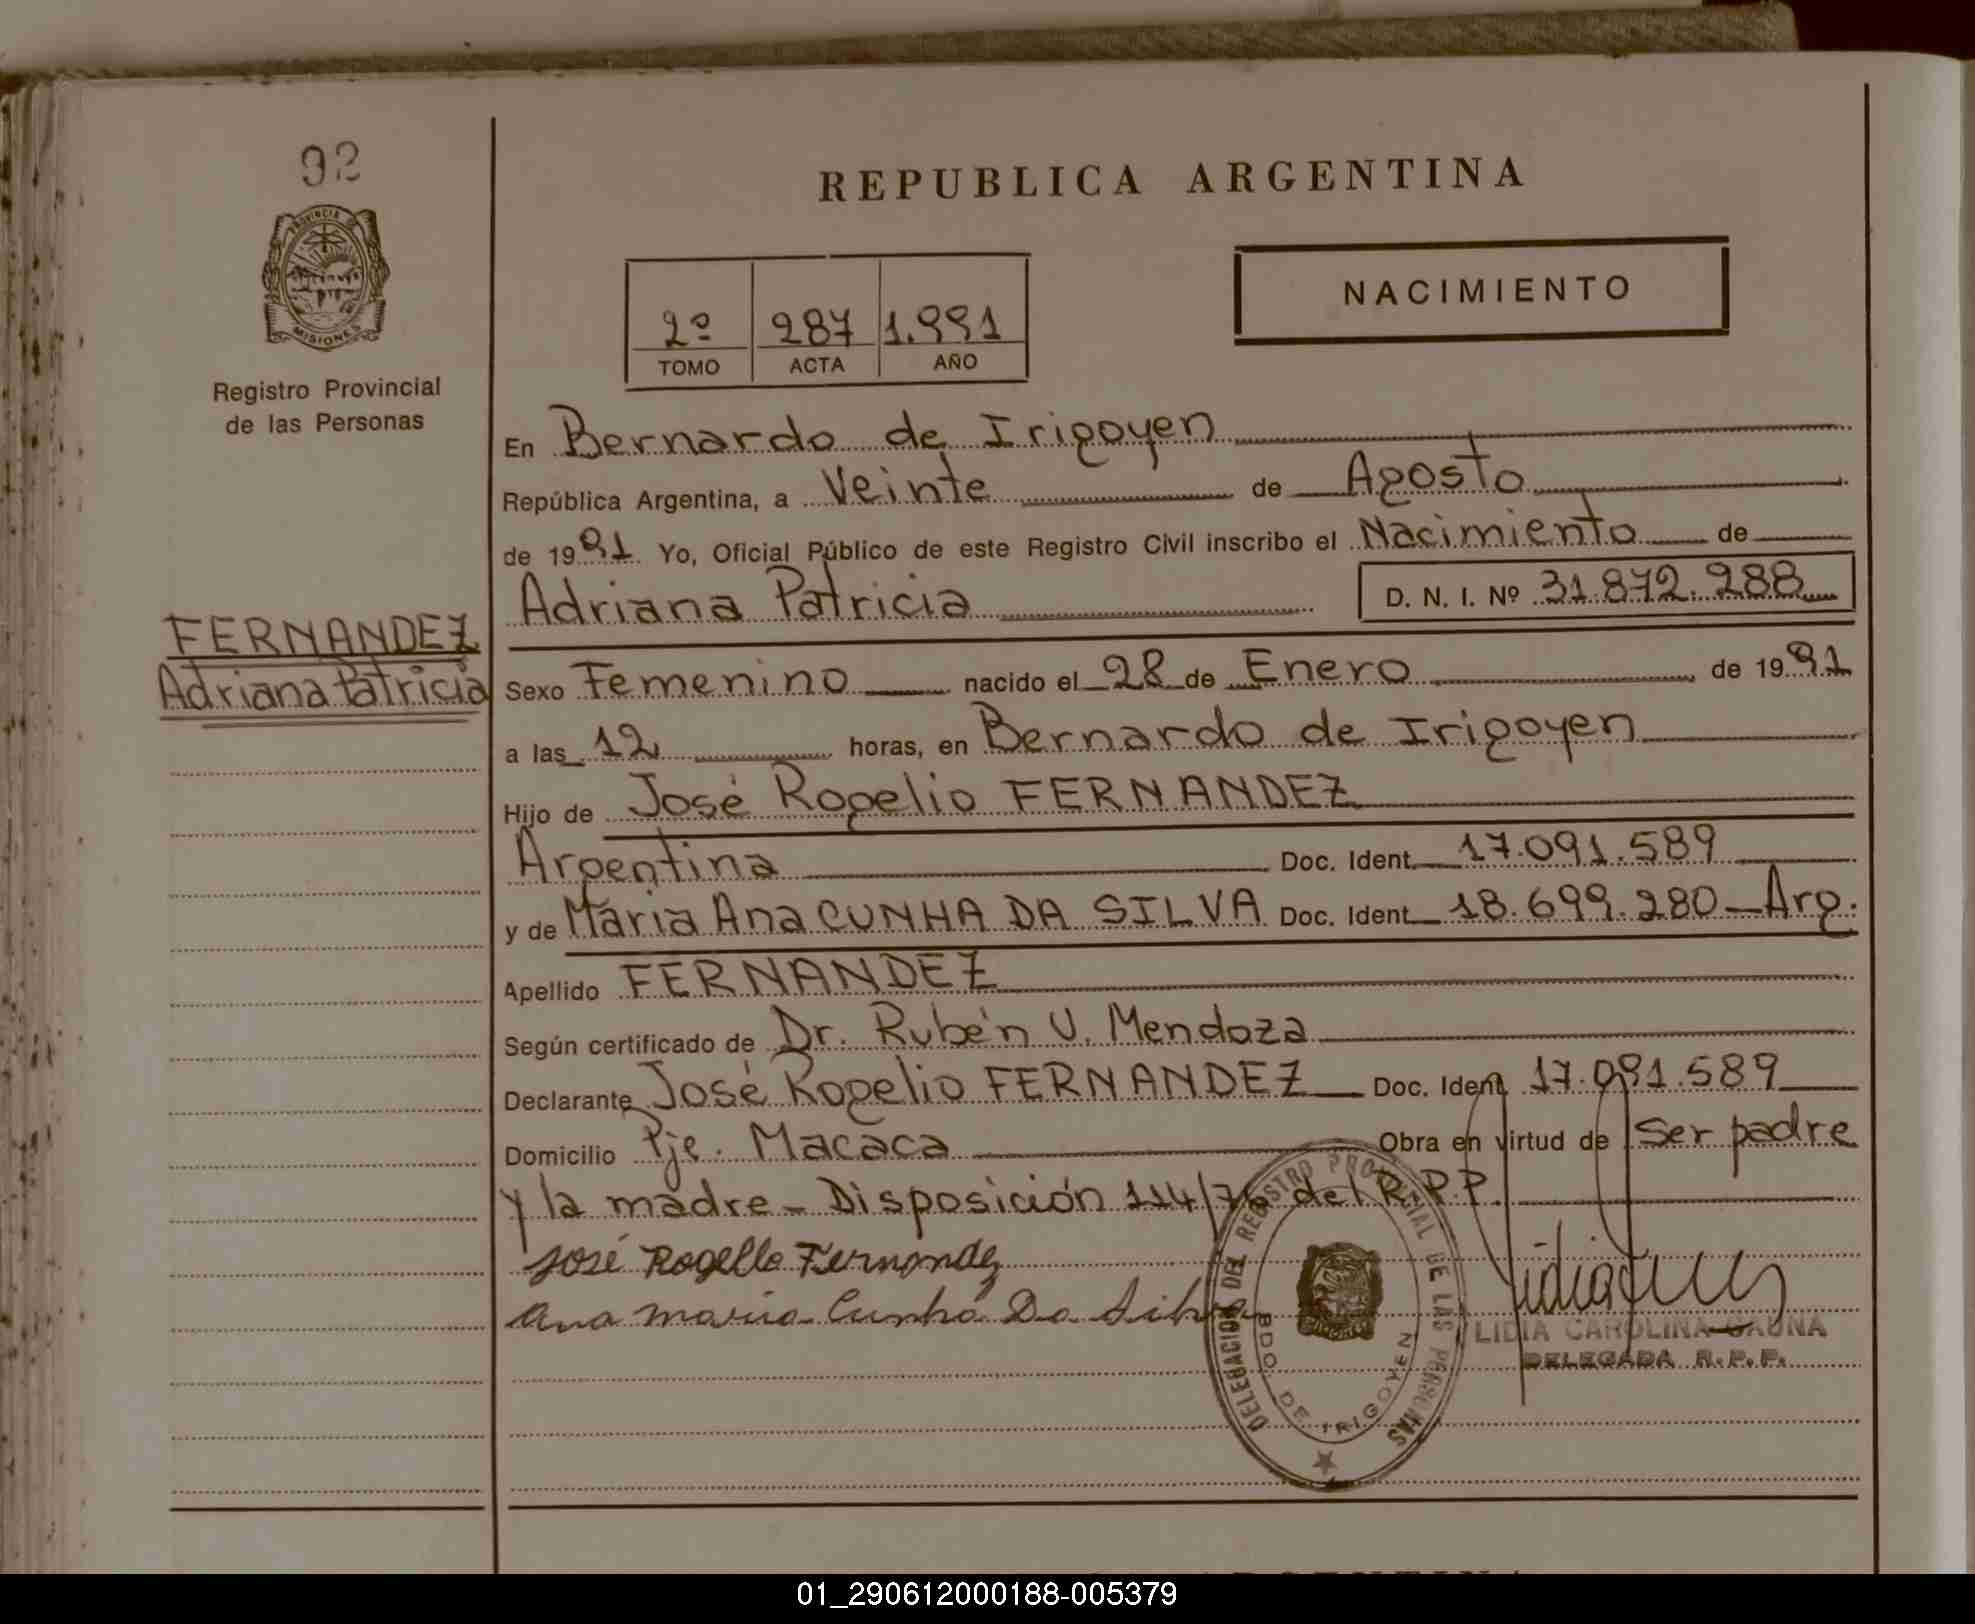 92
PROVINCIA DE
MISIONES
Registro Provincial
de las Personas
FERNANDEZ
Adriana Patricia
REPUBLICA ARGENTINA
2º 287 1.991
TOMO ACTA AÑO
NACIMIENTO
En Bernardo de Irigoyen
República Argentina, a Veinte de Agosto
de 1991 Yo, Oficial Público de este Registro Civil inscribo el Nacimiento de
Adriana Patricia D. N. I. Nº 31.872.288
Sexo Femenino nacido el 28 de Enero de 1991
a las 12 horas, en Bernardo de Irigoyen
Hijo de José Rogelio FERNANDEZ
Argentina Doc. Ident. 17.091.589
y de Maria Ana CUNHA DA SILVA Doc. Ident. 18.699.280 - Arg.
Apellido FERNANDEZ
Según certificado de Dr. Rubén V. Mendoza
Declarante José Rogelio FERNANDEZ Doc. Ident 17.091.589
Domicilio Pje. Macaca Obra en virtud de ser padre
y la madre - Disposición 114/76 del R.P.P.
José Rogelio Fernandez
Ana Maria Cunha Da Silva
DELEGACION DEL REGISTRO PROVINCIAL DE LAS PERSONAS
BDO. DE IRIGOYEN
LIDIA CAROLINA GAUNA
DELEGADA R.P.P.
01_290612000188-005379